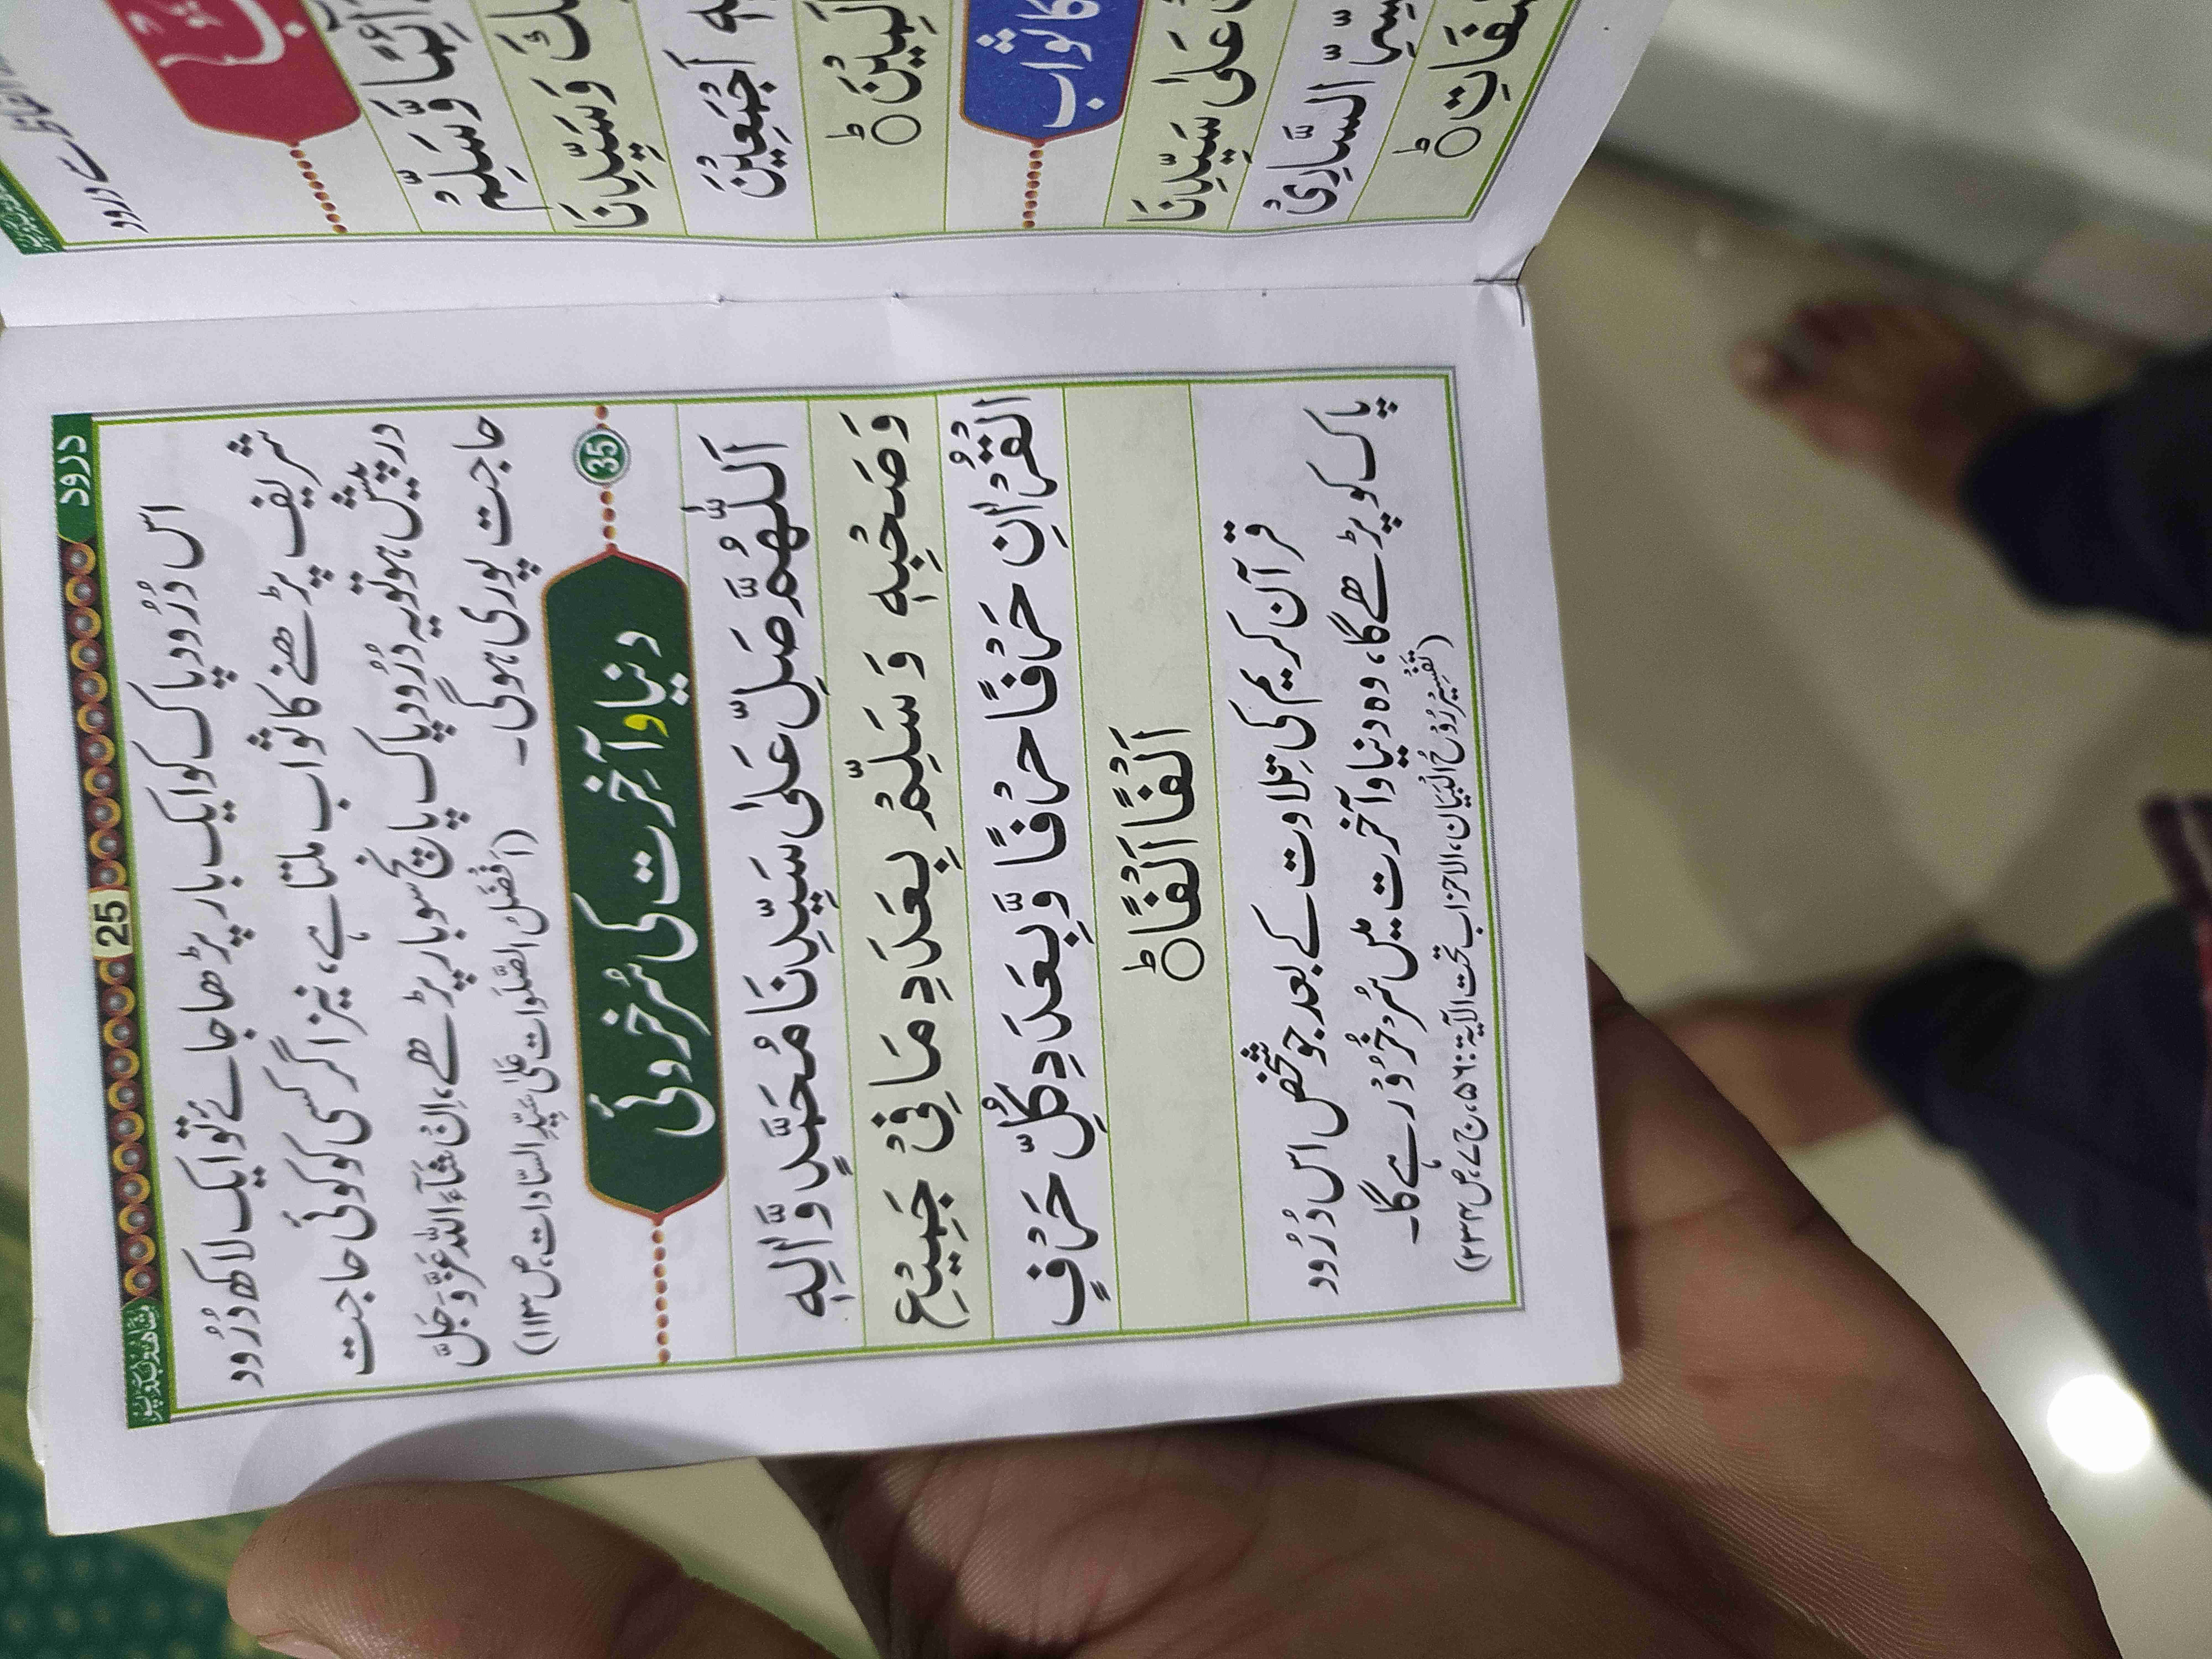 درود
25
اس دُرُودِ پاک کو ایک بار پڑھا جائے تو ایک لاکھ دُرُود
شریف پڑھنے کا ثواب ملتا ہے، نیز اگر کسی کو کوئی حاجت
درپیش ہو تو یہ دُرُودِ پاک پانچ سو بار پڑھے، اِنْ شَآءَ اللہ عَزَّوَجَلَّ
حاجت پوری ہوگی۔ (اَفْضَلُ الصَّلَوات عَلٰی سَیِّدِ السَّادات، ص۱۱۳)
35
دنیا و آخِرت کی سُرخروئی
اَللّٰهُمَّ صَلِّ عَلٰى سَيِّدِنَا مُحَمَّدٍ وَّاٰلِهٖ
وَصَحْبِهٖ وَسَلِّمْ بِعَدَدِ مَا فِيْ جَمِيْعِ
الْقُرْاٰنِ حَرْفًا حَرْفًا وَّبِعَدَدِ كُلِّ حَرْفٍ
اَلْفًا اَلْفًا ؕ
قرآنِ کریم کی تلاوت کے بعد جو شخص اس دُرُود
پاک کو پڑھے گا، وہ دنیا و آخرت میں سُرخْرُو رہے گا۔
(تَفْسِیْر رُوْحُ الْبَیَان، الاحزاب تحت الآیۃ: ۵۶، ج۷، ص۲۳۴)
سے درود
وَّسَلِّمْ
وَسَيِّدِنَا
اَجْمَعِيْنَ
کا ثواب
عَلٰى سَيِّدِنَا
السَّارِيْ